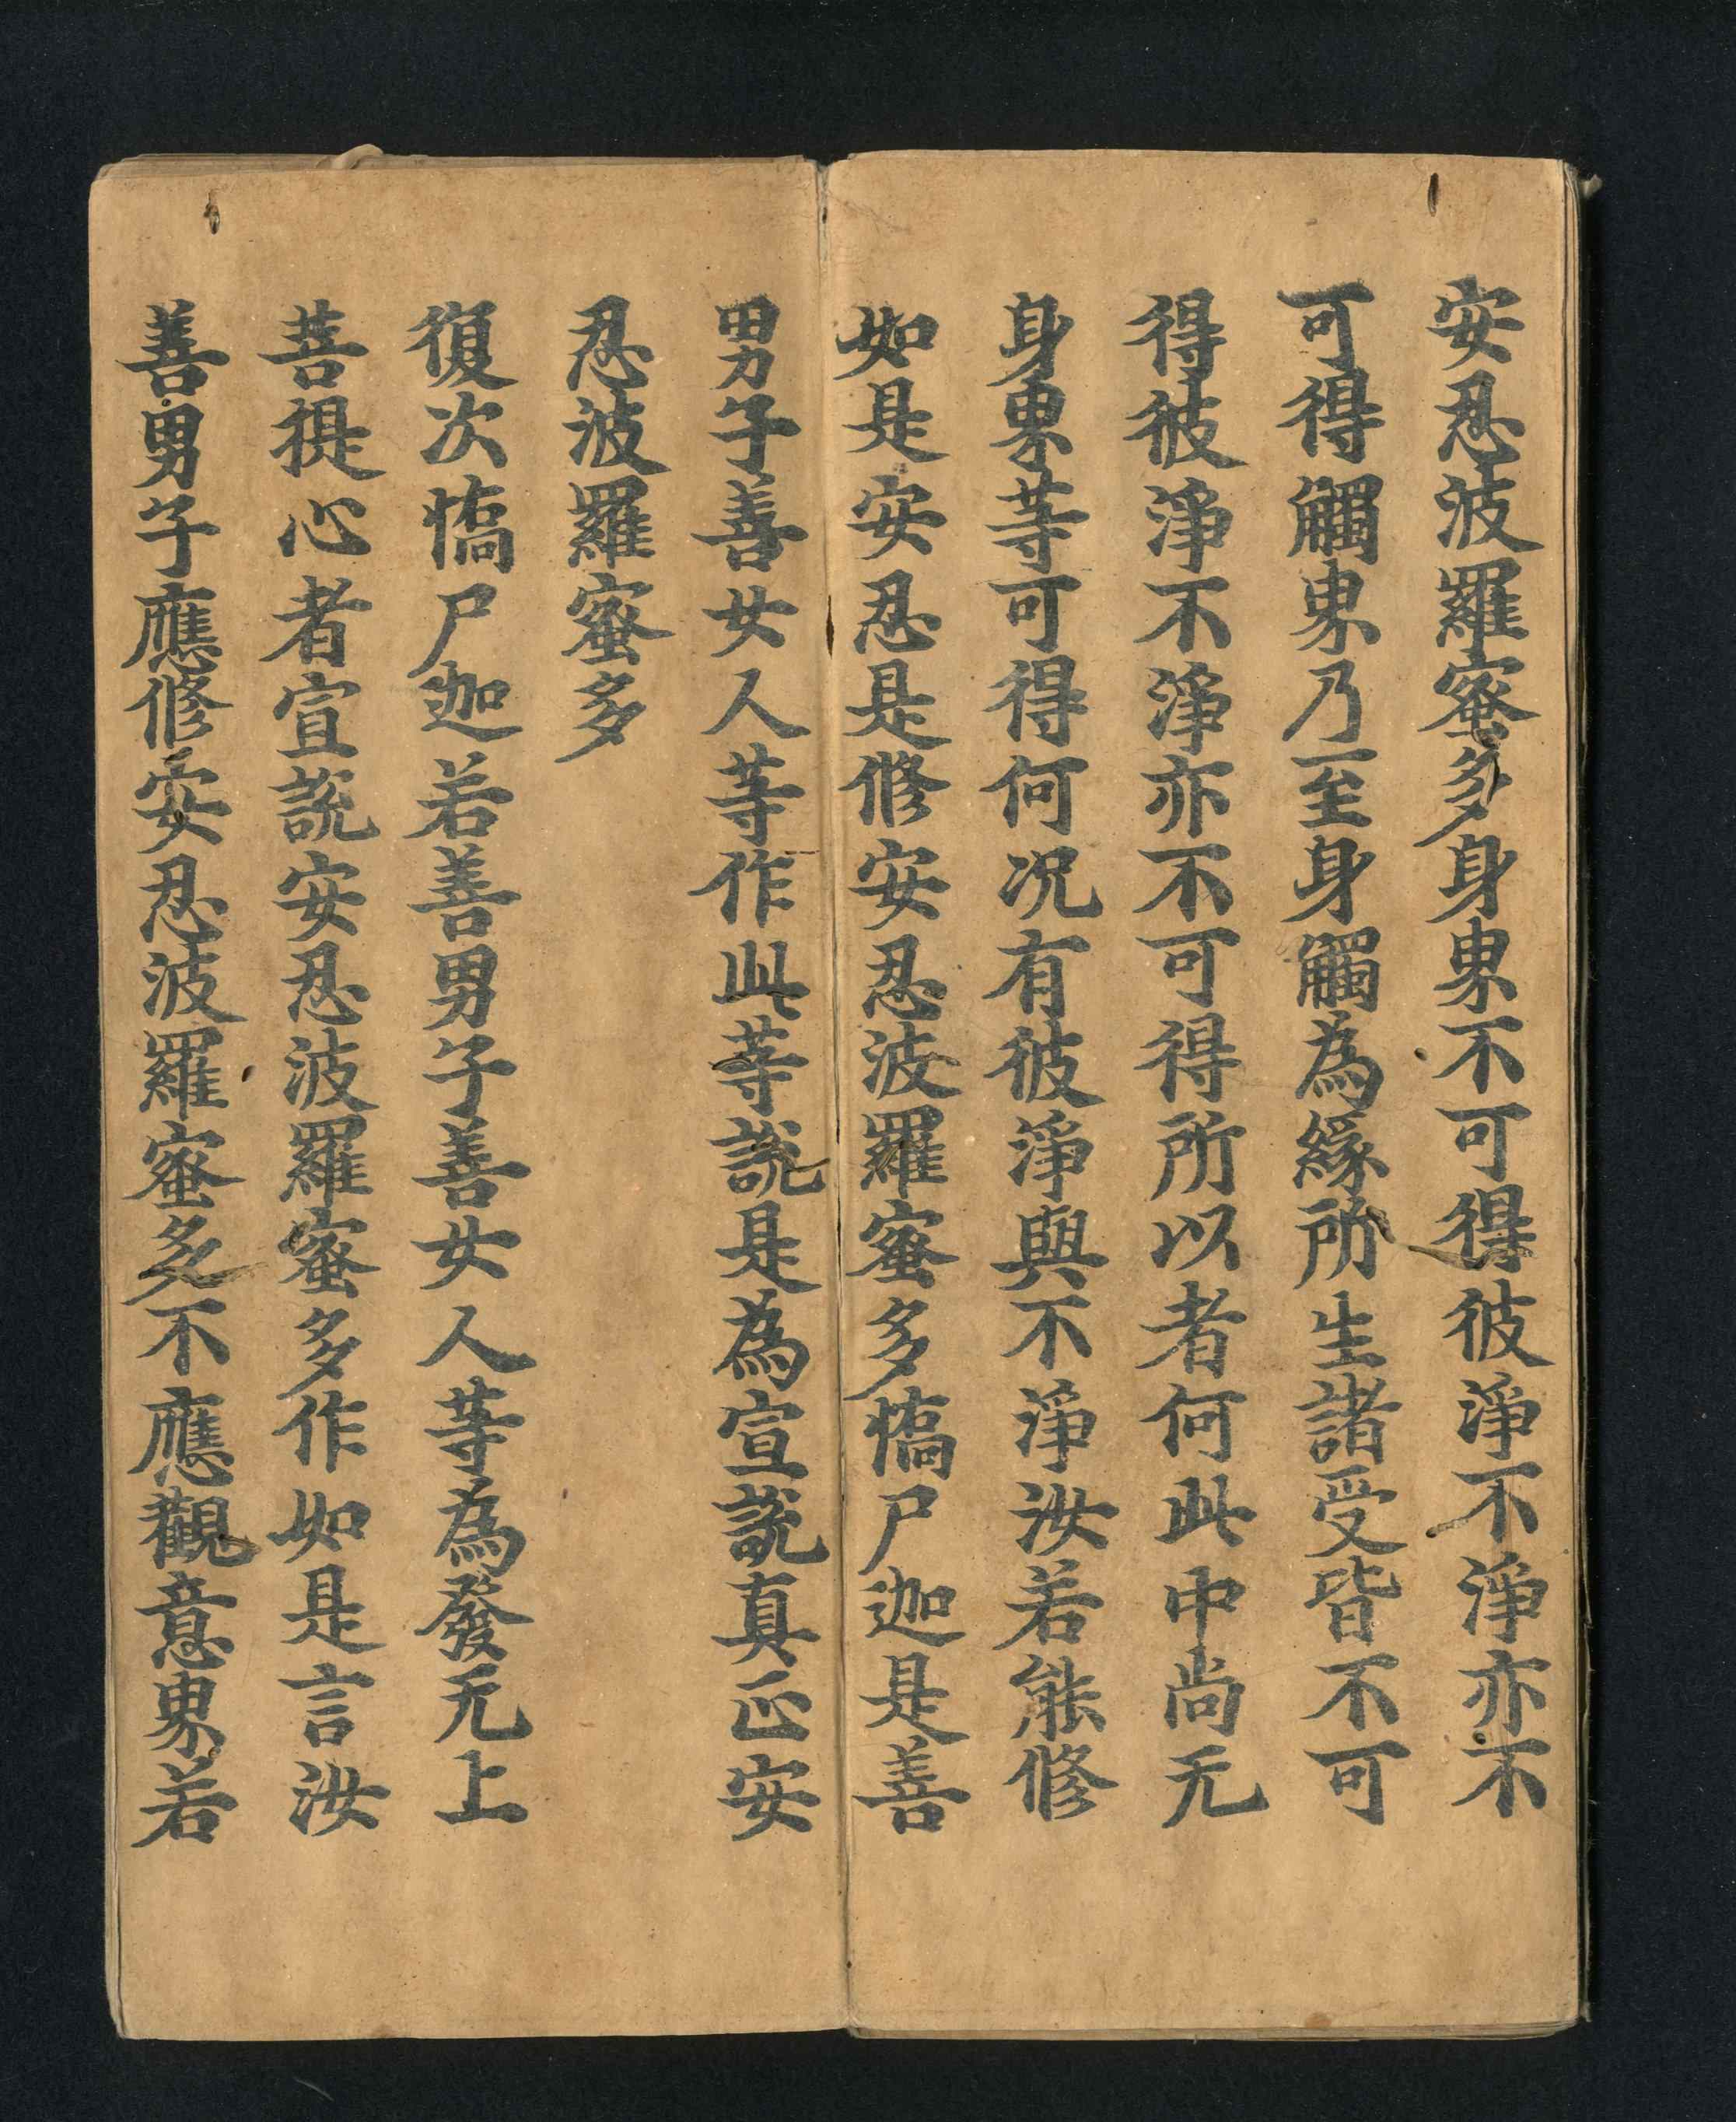 安忍波羅蜜多身界不可得彼淨不淨亦不
可得觸界乃至身觸為緣所生諸受皆不可
得彼淨不淨亦不可得所以者何此中尚无
身界等可得何況有彼淨與不淨汝若能修
如是安忍是修安忍波羅蜜多憍尸迦是善
男子善女人等作此等說是為宣說真正安
忍波羅蜜多
復次憍尸迦若善男子善女人等為發无上
菩提心者宣說安忍波羅蜜多作如是言汝
善男子應修安忍波羅蜜多不應觀意界若